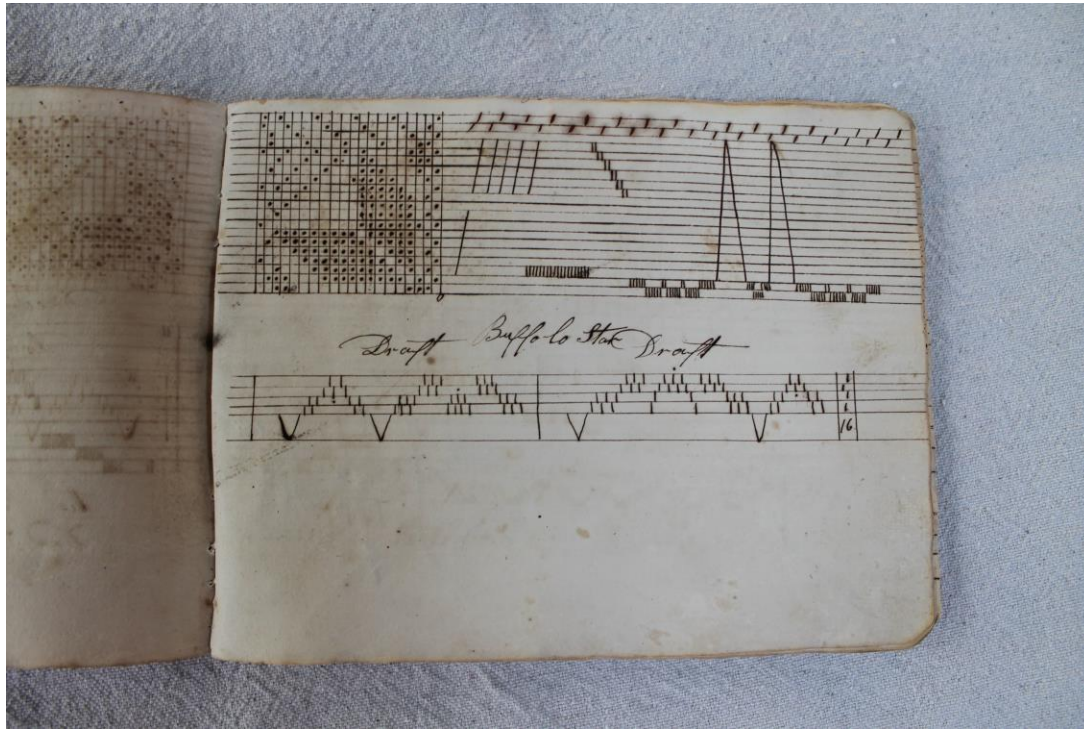 Draft Buffolo Star Draft
16